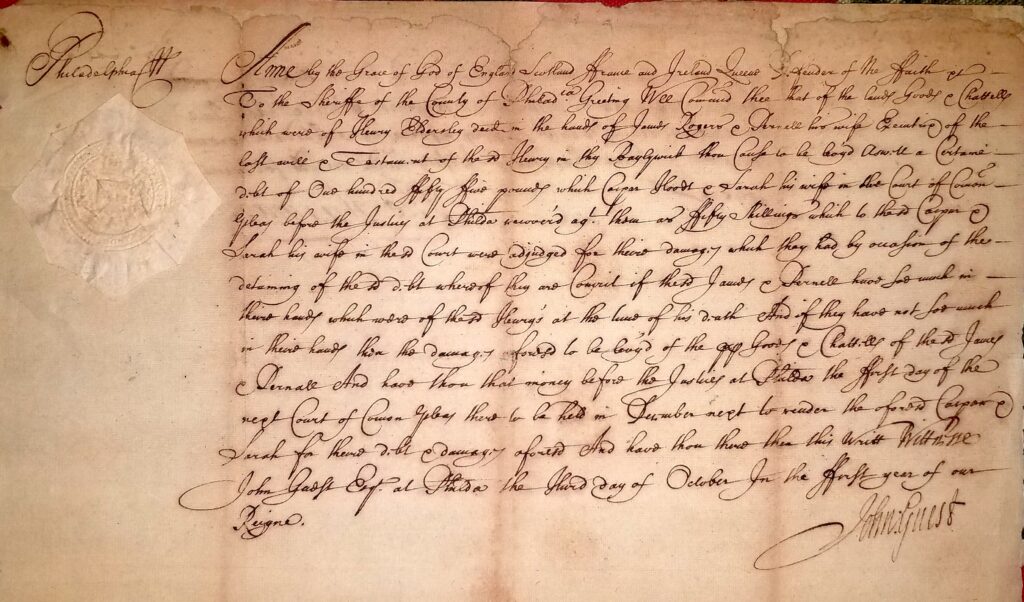 Philadelphia ss
Anne by the Grace of God of England Scotland ffrance and Ireland Queene Defender of the ffaith &c
To the Sheriffe of the County of Philad.ia Greeting Wee Com̄and thee that of the lands Goods & Chattells
which were of Henry Eldersley decd in the hands of James Rogers & Pernell his wife Executrix of the
last will & Testament of the sd Henry in thy Baylywick thou Cause to be levyd Aswell a Certaine
debt of One hundred ffifty ffive pounds which Casper Hoodt & Sarah his wife in the Court of Com̄on
Pleas before the Justices at Philda recover'd agt them as ffifty Shillings which to the sd Casper &
Sarah his wife in the sd Court were adjudged for theire damages which they had by occasion of the
detaining of the sd debt whereof they are Convict if the sd James & Pernell have soe much in
theire hands which were of the sd Henry's at the time of his death And if they have not soe much
in theire hands then the damages aforesd to be levy'd of the Goods & Chattells of the sd James
& Pernell And have thou that money before the Justices at Philda the ffirst day of the
next Court of Com̄on Pleas there to be held in December next to render the aforesd Casper &
Sarah for theire debt & damages aforesd And have thou there then this Writt Wittnesse
John Guest Esqr. at Philda the Third day of October In the ffirst year of our
Reigne.
John: Guest